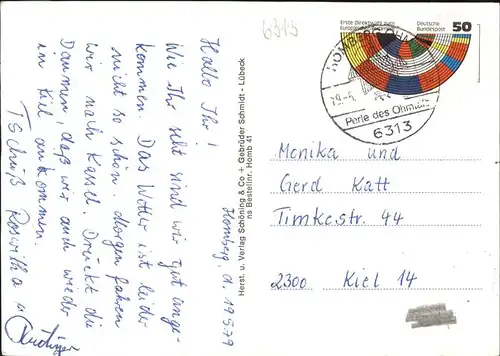 6313
Homberg, d. 19.5.79
Hallo Ihr!
Wie Ihr seht sind wir gut ange-
kommen. Das Wetter ist leider
nicht so schön. Morgen fahren
wir nach Kassel. Drückt die
Daumen, daß wir auch wieder
in Kiel ankommen.
Tschüß Roswitha u.
Herst. u. Verlag Schöning & Co + Gebrüder Schmidt - Lübeck
Bestellnr. Homb 41
Erste Direktwahl zum
Deutsche
Bundespost
50
HOMBERG, OHM
Perle des Ohmtals
6313
Monika und
Gerd Katt
Timkestr. 44
2300 Kiel 14